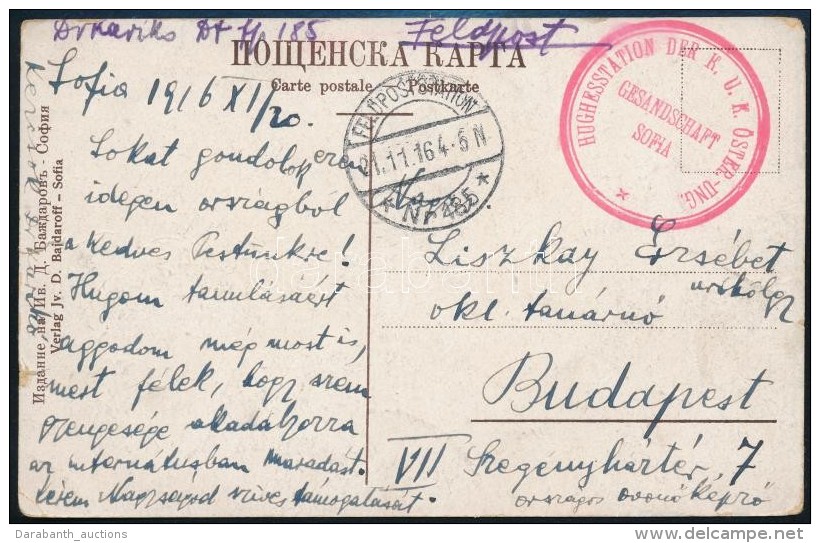 Feldpost
ПОЩЕНСКА КАРТА
Carte postale Postkarte
Sofia 1916 XI/20.
Sokat gondolok ezen
idegen országból
a kedves Pestünkre!
Hugom tanulásáért
aggodom még most is,
mert félek, hogy szem
gyengesége akadályozza
az internátusban maradást.
kérem Nagyságod szives támogatását.
FELDPOSTSTATION
21.11.16 4-5 N
* Nr 485 *
HUGHESSTATION DER K. U. K. ÖSTER.-UNG.
GESANDSCHAFT
SOFIA
Liszkay Erzsébet
urhölgy
okl. tanárnő
Budapest
VII Szegényháztér 7
országos óvónőképző
Издание на Ив. Д. Баждаровъ - София
Verlag Jv. D. Bajdaroff – Sofia
darabanth
Darabanth_auctions
delcampe.net